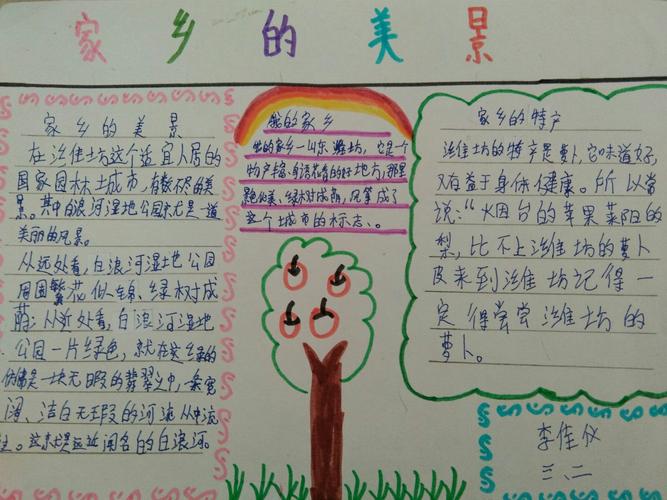 家乡的美景
家乡的美景
在潍坊这个适宜人居的
国家园林城市,有数不尽的美
景。其中白浪河湿地公园就是一道
美丽的风景。
从远处看,白浪河湿地公园
周围繁花似锦、绿树成
荫;从近处看,白浪河湿地
公园一片绿色,就在这绿的
仿佛是一块无暇的翡翠之中,一条宽
阔、洁白无瑕的河流从中流
过。这就是远近闻名的白浪河。
我的家乡
我的家乡—山东潍坊,它是一个
物产丰富、鸟语花香的好地方,那里
景色优美、绿树成荫,风筝成了
这个城市的标志、。
家乡的特产
潍坊的特产是萝卜,它味道好,
又有益于身体健康。所以常
说:“烟台的苹果莱阳的
梨,比不上潍坊的萝卜
皮来到潍坊记得一
定得尝尝潍坊的
萝卜。
李佳仪
三、二